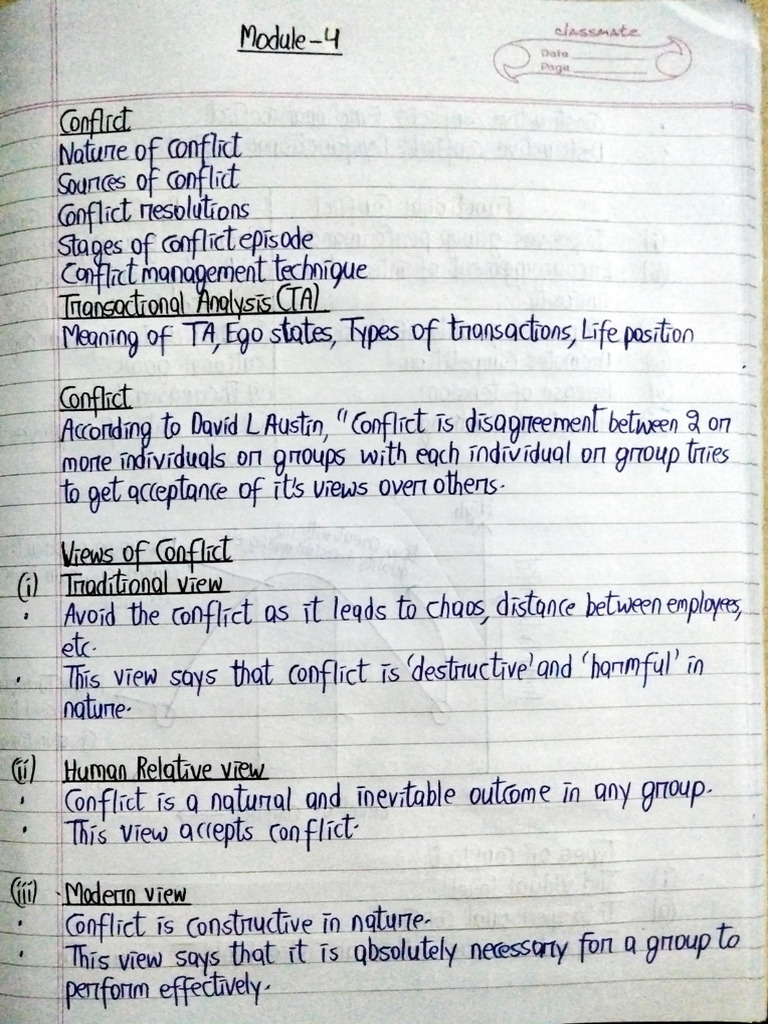 Module-4
classmate
Date
Page
Conflict
Nature of conflict
Sources of conflict
Conflict resolutions
Stages of conflict episode
Conflict management technique
Transactional Analysis (TA)
Meaning of TA, Ego states, Types of transactions, Life position
Conflict
According to David L Austin, "Conflict is disagreement between 2 or
more individuals or groups with each individual or group tries
to get acceptance of it's views over others.
Views of Conflict
(i) Traditional view
· Avoid the conflict as it leads to chaos, distance between employees,
etc.
· This view says that conflict is 'destructive' and 'harmful' in
nature.
(ii) Human Relative view
· Conflict is a natural and inevitable outcome in any group.
· This view accepts conflict.
(iii) Modern view
· Conflict is constructive in nature.
· This view says that it is absolutely necessary for a group to
perform effectively.